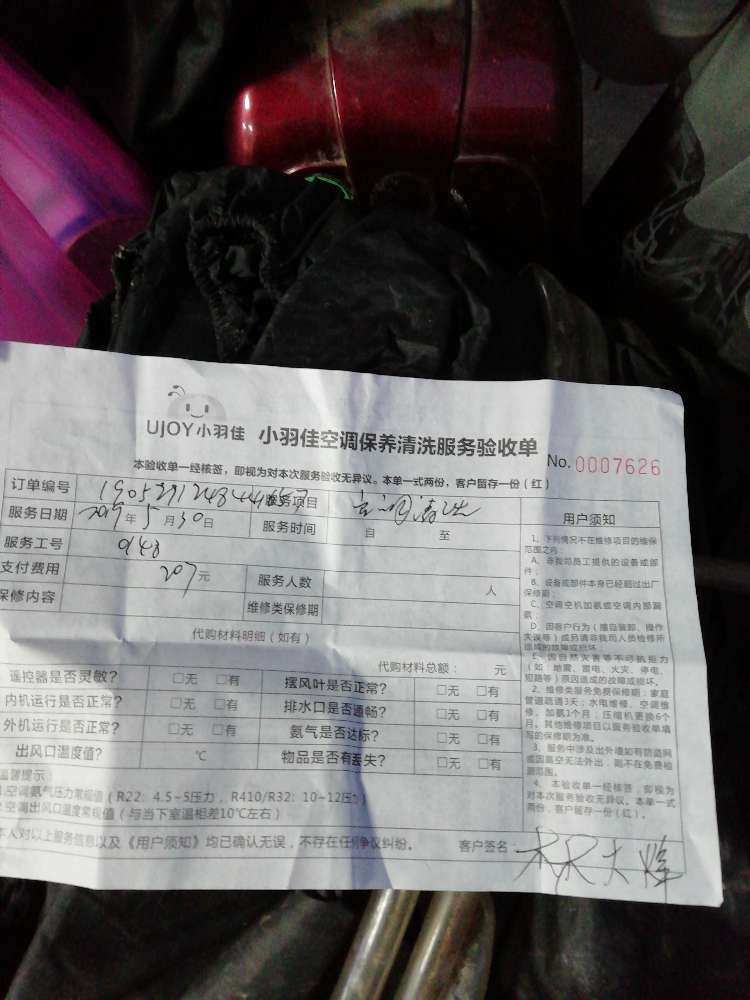 UJOY小羽佳 小羽佳空调保养清洗服务验收单
No. 0007626
本验收单一经核签，即视为对本次服务验收无异议。本单一式两份，客户留存一份（红）
订单编号 服务项目 空调清洗
服务日期 2019年5月30日 服务时间 自 至
服务工号 0148
支付费用 207元 服务人数 人
保修内容 维修类保修期
代购材料明细（如有）
代购材料总额： 元
遥控器是否灵敏? □无 □有 摆风叶是否正常? □无 □有
内机运行是否正常? □无 □有 排水口是否通畅? □无 □有
外机运行是否正常? □无 □有 氨气是否达标? □无 □有
出风口温度值? ℃ 物品是否有丢失? □无 □有
温馨提示：
1.空调氨气压力常规值（R22：4.5~5压力，R410/R32：10~12压力）
2.空调出风口温度常规值（与当下室温相差10℃左右）
本人对以上服务信息以及《用户须知》均已确认无误，不存在任何争议纠纷。 客户签名：
用户须知
1、下列情况不在维修项目的维保
范围之内：
A、非我司员工提供的设备或部
件；
B、设备或部件本身已经超过出厂
保修期；
C、空调空机加氨或空调内部漏
氨；
D、因客户行为（擅自装卸、操作
失误等）或另请非我司人员检修所
造成的故障或损坏。
E、因自然灾害等不可抗拒力
（如 地震、雷电、火灾、停电、
短路等）原因造成的故障或损坏。
2、维修类服务免费保修期：家庭
管道疏通3天；水电维修、空调维
修、加氨1个月；压缩机更换6个
月。其他维修项目以服务验收单填
写的保修期为准。
3、服务中涉及出外墙如有防盗网
或因氨空无法外出，则不在免费检
测范围。
4、本验收单一经核签，即视为
对本次服务验收无异议。本单一式
两份，客户留存一份（红）。